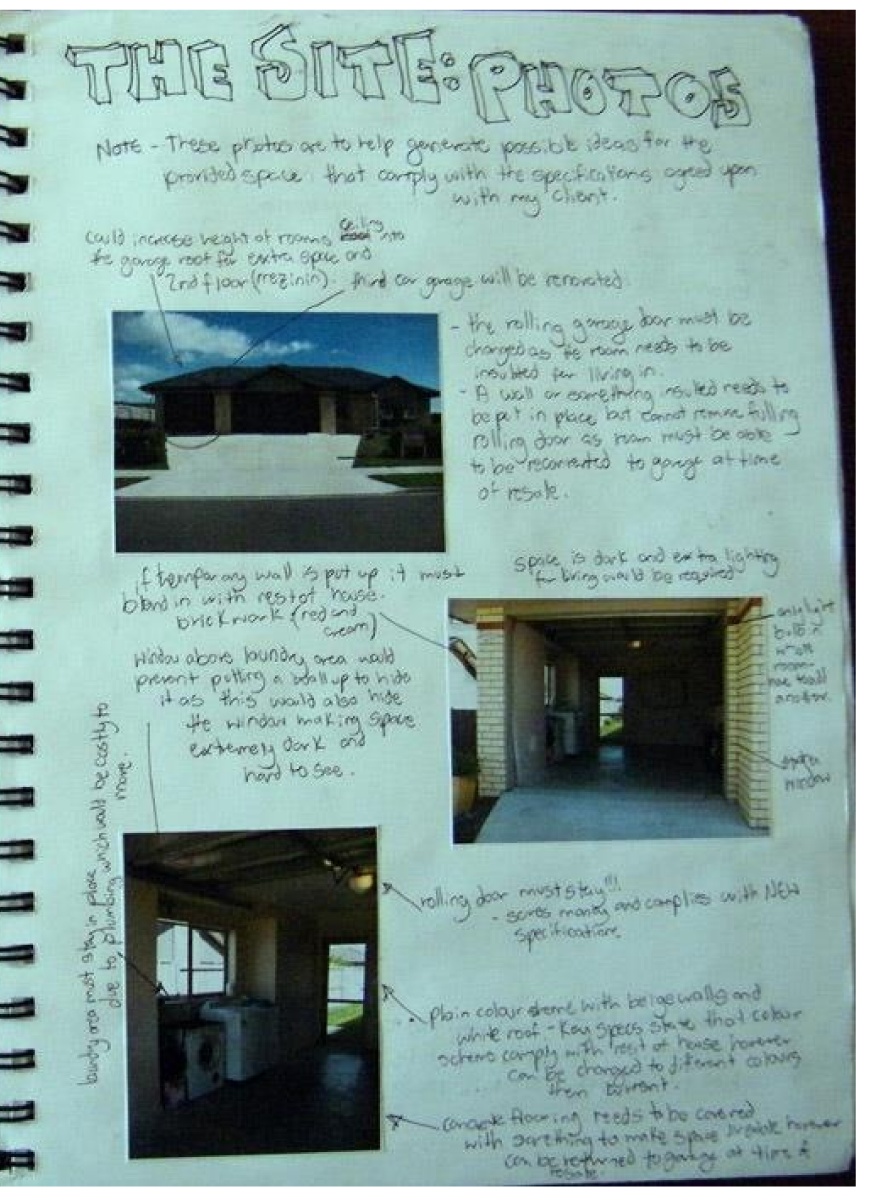 THE SITE: PHOTOS
Note - These photos are to help generate possible ideas for the
provided space that comply with the specifications agreed upon
with my client.
could increase height of rooms ceiling into
the garage roof for extra space and
2nd floor (mezinin).
third car garage will be renovated.
- the rolling garage door must be
changed as the room needs to be
insulted for living in.
- A wall or something insulted needs to
be put in place but cannot remove fulling
rolling door as room must be able
to be reconverted to garage at time
of resale.
if temporary wall is put up it must
blend in with rest of house.
brickwork (red and
cream)
space is dark and extra lighting
for living would be required
only light
bulb in
whole
room
have to add
another.
window
window above laundry area would
prevent putting a wall up to hide
it as this would also hide
the window making space
extremely dark and
hard to see.
laundry area must stay in place
due to plumbing which would be costly to
move.
rolling door must stay!!!
- saves money and complies with NEW
specifications.
plain colour scheme with beige walls and
white roof - Key specs state that colour
scheme comply with rest of house however
can be changed to different colours
then current.
concrete flooring needs to be covered
with something to make space livable however
can be returned to garage at time of
resale.